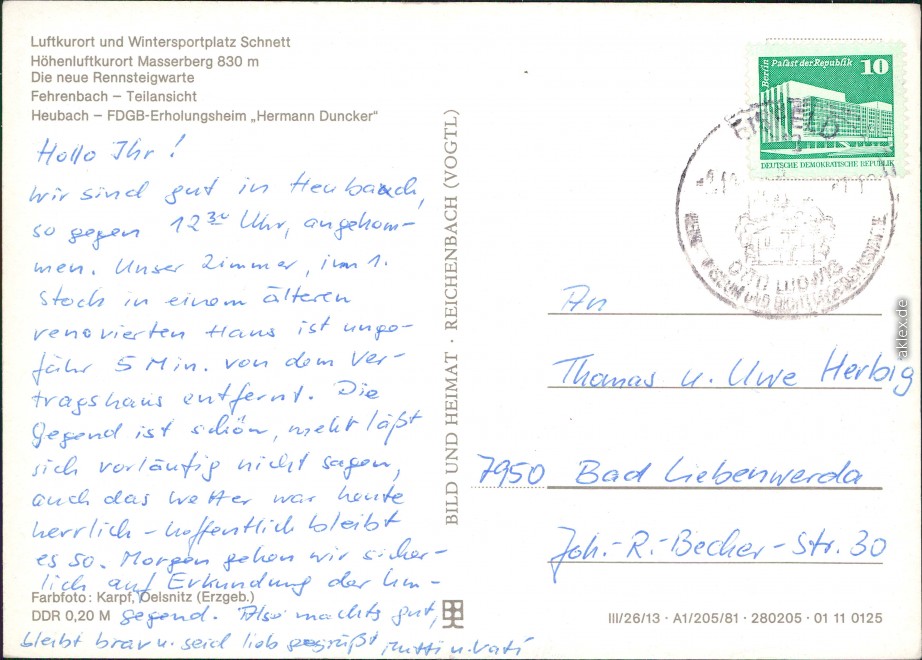 Luftkurort und Wintersportplatz Schnett
Höhenluftkurort Masserberg 830 m
Die neue Rennsteigwarte
Fehrenbach – Teilansicht
Heubach – FDGB-Erholungsheim „Hermann Duncker“
Hallo Ihr!
Wir sind gut in Heubach,
so gegen 12³⁰ Uhr, angekom-
men. Unser Zimmer, im 1.
Stock in einem älteren
renovierten Haus ist unge-
fähr 5 Min. von dem Ver-
tragshaus entfernt. Die
Gegend ist schön, mehr läßt
sich vorläufig nicht sagen,
auch das Wetter war heute
herrlich – hoffentlich bleibt
es so. Morgen gehen wir sicher-
lich auf Erkundung der Um-
gegend. Also machts gut,
bleibt brav u. seid lieb gegrüßt Mutti u. Vati
Farbfoto: Karpf, Oelsnitz (Erzgeb.)
DDR 0,20 M
BILD UND HEIMAT · REICHENBACH (VOGTL)
Berlin Palast der Republik 10
DEUTSCHE DEMOKRATISCHE REPUBLIK
EISFELD
OTTO LUDWIG
MUSEUM UND
An
Thomas u. Uwe Herbig
7950 Bad Liebenwerda
Joh.-R.-Becher-Str. 30
III/26/13 · A1/205/81 · 280205 · 01 11 0125
aklex.de